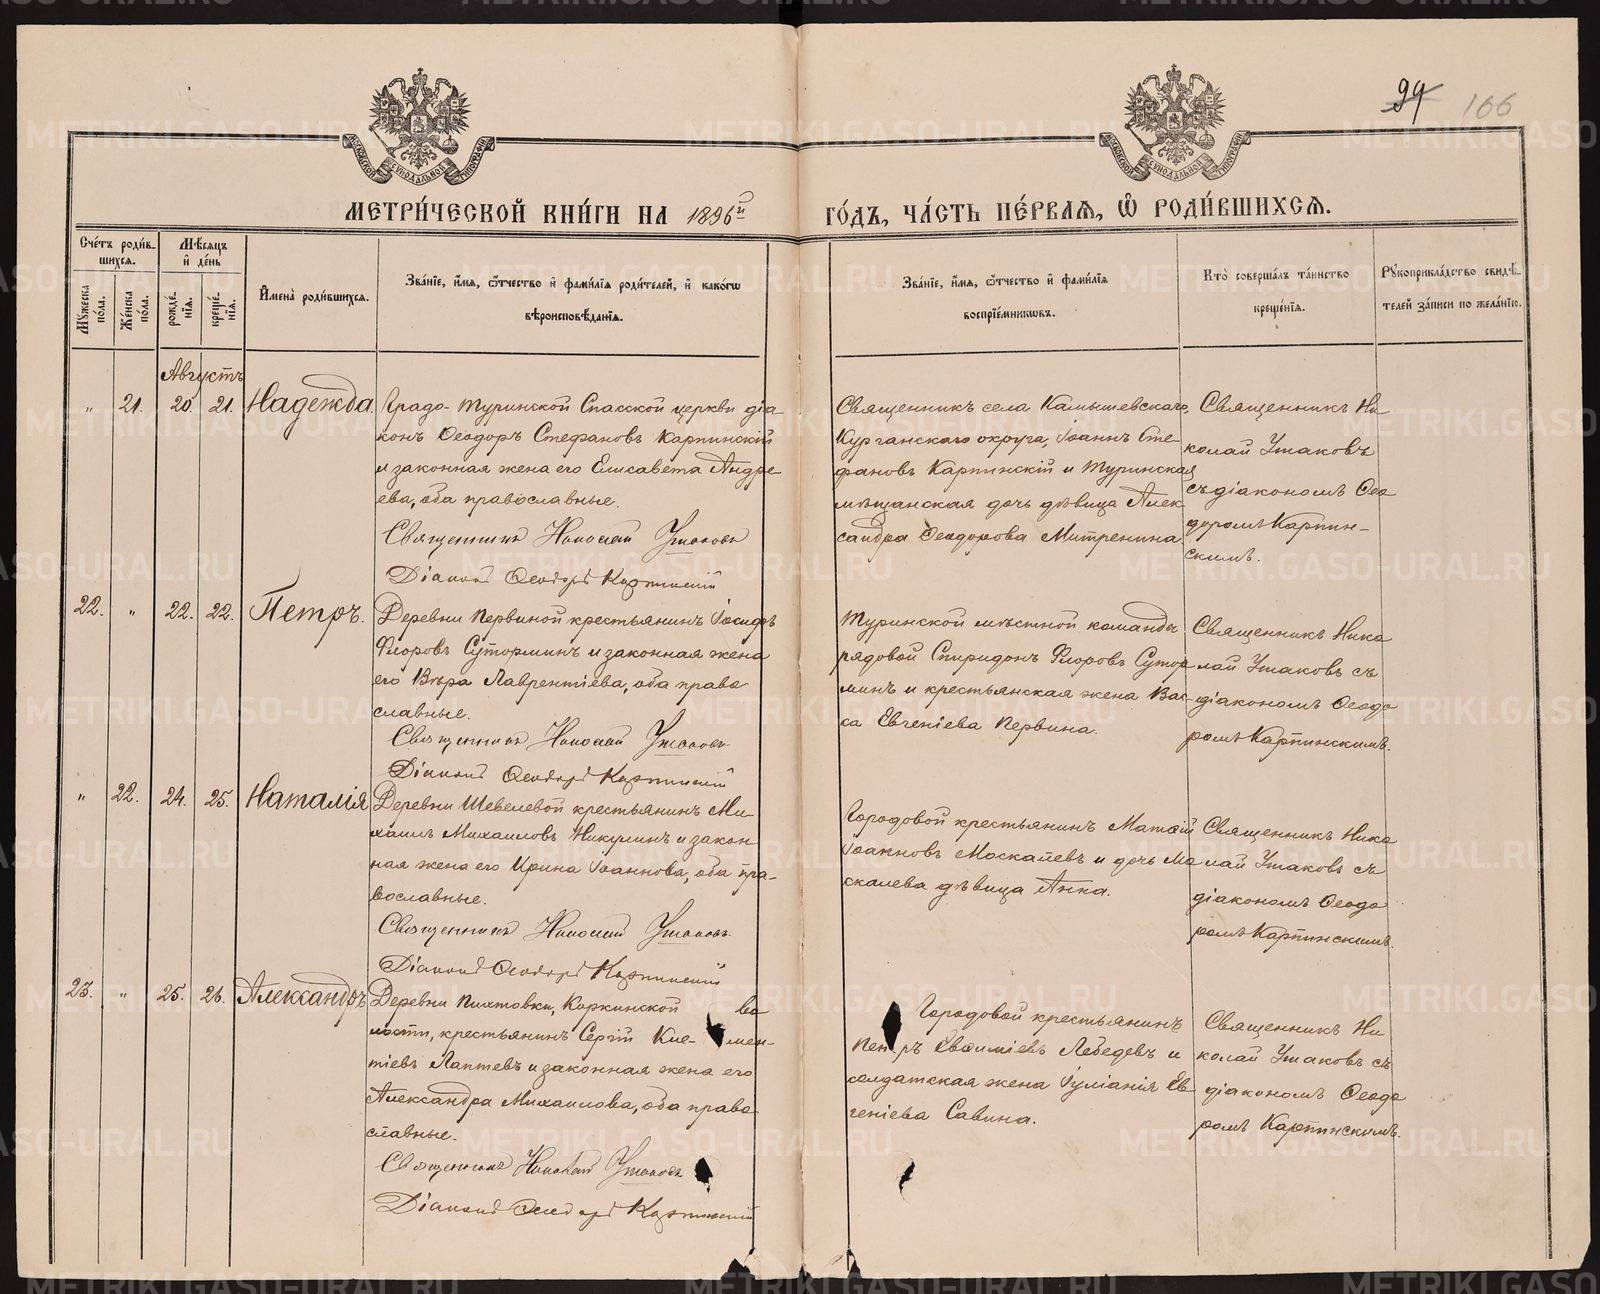 94 166
МОСКОВСКОЙ СѴНОДАЛЬНОЙ ТИПОГРАФІИ
МОСКОВСКОЙ СѴНОДАЛЬНОЙ ТИПОГРАФІИ
МЕТРИ́ЧЕСКОЙ КНИ́ГИ НА 1896й ГО́ДЪ, ЧА́СТЬ ПЕ́РВАЯ, Ѽ РОДИ́ВШИХСЯ.
Сче́тъ роди́в-
шихся.
Мꙋжеска по́ла.
Же́нска по́ла.
Мѣ́сяцъ и҆ де́нь
рожде́нїя.
креще́нїя.
И҆мена̀ роди́вшихся.
Зва́нїе, и҆́мя, ѻ҆́тчество и҆ фами́лїя роди́телей, и҆ како́гѡ
вѣроисповѣ́данїя.
Зва́нїе, и҆́мя, ѻ҆́тчество и҆ фами́лїя
воспрїе́мникѡвъ.
Кто̀ соверша́лъ та́инство
креще́нїя.
Рꙋкоприкла́дство свидѣ́-
телей за́писи по жела́нїю.
Августъ
„ 21. 20. 21. Надежда
Градо-Туринской Спасской церкви діа-
конъ Ѳеодоръ Стефановъ Карпинскій
и законная жена его Елисавета Андре-
ева, оба православные.
Священникъ Николай Ушаковъ
Діаконъ Ѳеодоръ Карпинскій
Священникъ села Камышевскаго,
Курганскаго округа, Іоаннъ Сте-
фановъ Карпинскій и Туринская
мѣщанская дочь дѣвица Алек-
сандра Ѳеодорова Митренина.
Священникъ Ни-
колай Ушаковъ
съ діакономъ Ѳео-
доромъ Карпин-
скимъ.
22. „ 22. 22. Петръ.
Деревни Первиной крестьянинъ Іосифъ
Флоровъ Суторминъ и законная жена
его Вѣра Лаврентіева, оба право-
славные.
Священникъ Николай Ушаковъ
Діаконъ Ѳеодоръ Карпинскій
Туринской мѣстной команды
рядовой Спиридонъ Флоровъ Сутор-
минъ и крестьянская жена Вас-
са Евгеніева Первина.
Священникъ Нико
лай Ушаковъ съ
діакономъ Ѳеодо
ромъ Карпинскимъ.
„ 22. 24. 25. Наталія
Деревни Шевелевой крестьянинъ Ми-
хаилъ Михаиловъ Никулинъ и закон-
ная жена его Ирина Іоаннова, оба пра-
вославные.
Священникъ Николай Ушаковъ
Діаконъ Ѳеодоръ Карпинскій
Городовой крестьянинъ Матѳій
Іоанновъ Москалевъ и дочь Мо
скалева дѣвица Анна.
Священникъ Нико
лай Ушаковъ съ
діакономъ Ѳеодо
ромъ Карпинскимъ.
23. „ 25. 26. Александръ
Деревни Пихтовки, Коркинской во-
лости, крестьянинъ Сергій Клемен-
тіевъ Лаптевъ и законная жена его
Александра Михаилова, оба право-
славные.
Священникъ Николай Ушаковъ
Діаконъ Ѳеодоръ Карпинскій
Городовой крестьянинъ
Петръ Евѳиміевъ Лебедевъ и
солдатская жена Іуліанія Ев-
геніева Савина.
Священникъ Ни-
колай Ушаковъ съ
діакономъ Ѳеодо
ромъ Карпинскимъ.
METRIKI.GASO-URAL.RU